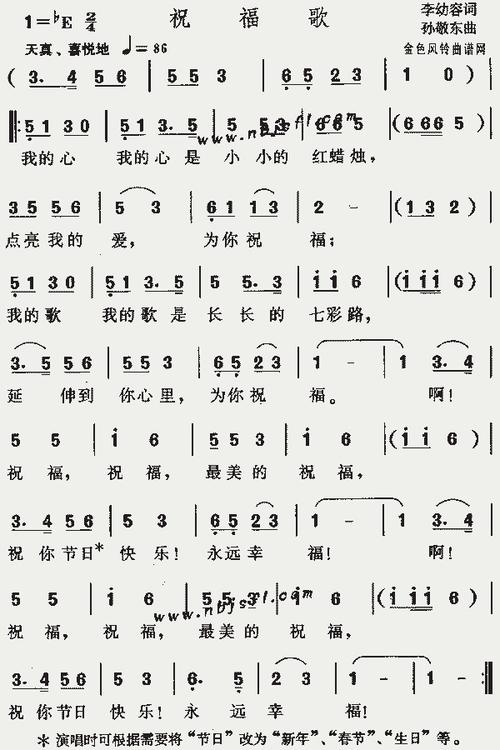 祝福歌
1=♭E 2/4
李幼容词
孙敬东曲
天真、喜悦地 ♩=86
金色风铃曲谱网
( 3. 4 5 6 | 5 5 3 | 6 5 2 3 | 1 0 ) |
5 1 3 0 | 5 1 3. 5 | 5 5 3 | 6 6 5 | ( 6 6 6 5 ) |
www.nbjsfl.com
我的心 我的心 是 小 小的 红蜡 烛,
3 5 5 6 | 5 3 | 6 1 1 3 | 2 - | ( 1 3 2 ) |
点亮 我的 爱, 为你 祝 福;
5 1 3 0 | 5 1 3. 5 | 5 5. 3 | i i 6 | ( i i i 6 ) |
我的 歌 我的 歌 是 长 长 的 七彩 路,
3. 5 5 6 | 5 5 3 | 6 5 2 3 | 1 - | 1 3. 4 |
延 伸到 你心 里, 为你 祝 福。 啊!
5 5 | i 6 | 5 5 3 | i 6 | ( i i 6 ) |
祝 福, 祝 福, 最美 的 祝 福,
3. 4 5 6 | 5 3 | 6 5 2 3 | 1 - | 1 3. 4 |
祝 你 节日* 快 乐! 永远 幸 福! 啊!
5 5 | i 6 | 5 5 3 | i 6 | ( i i i 6 ) |
祝 福, 祝 福, 最美 的 祝 福,
3. 4 5 6 | 5 3 | 6. 5 | 2 3 | 1 - | 1 - :‖
祝 你 节日 快 乐! 永 远 幸 福!
* 演唱时可根据需要将“节日”改为“新年”、“春节”、“生日”等。